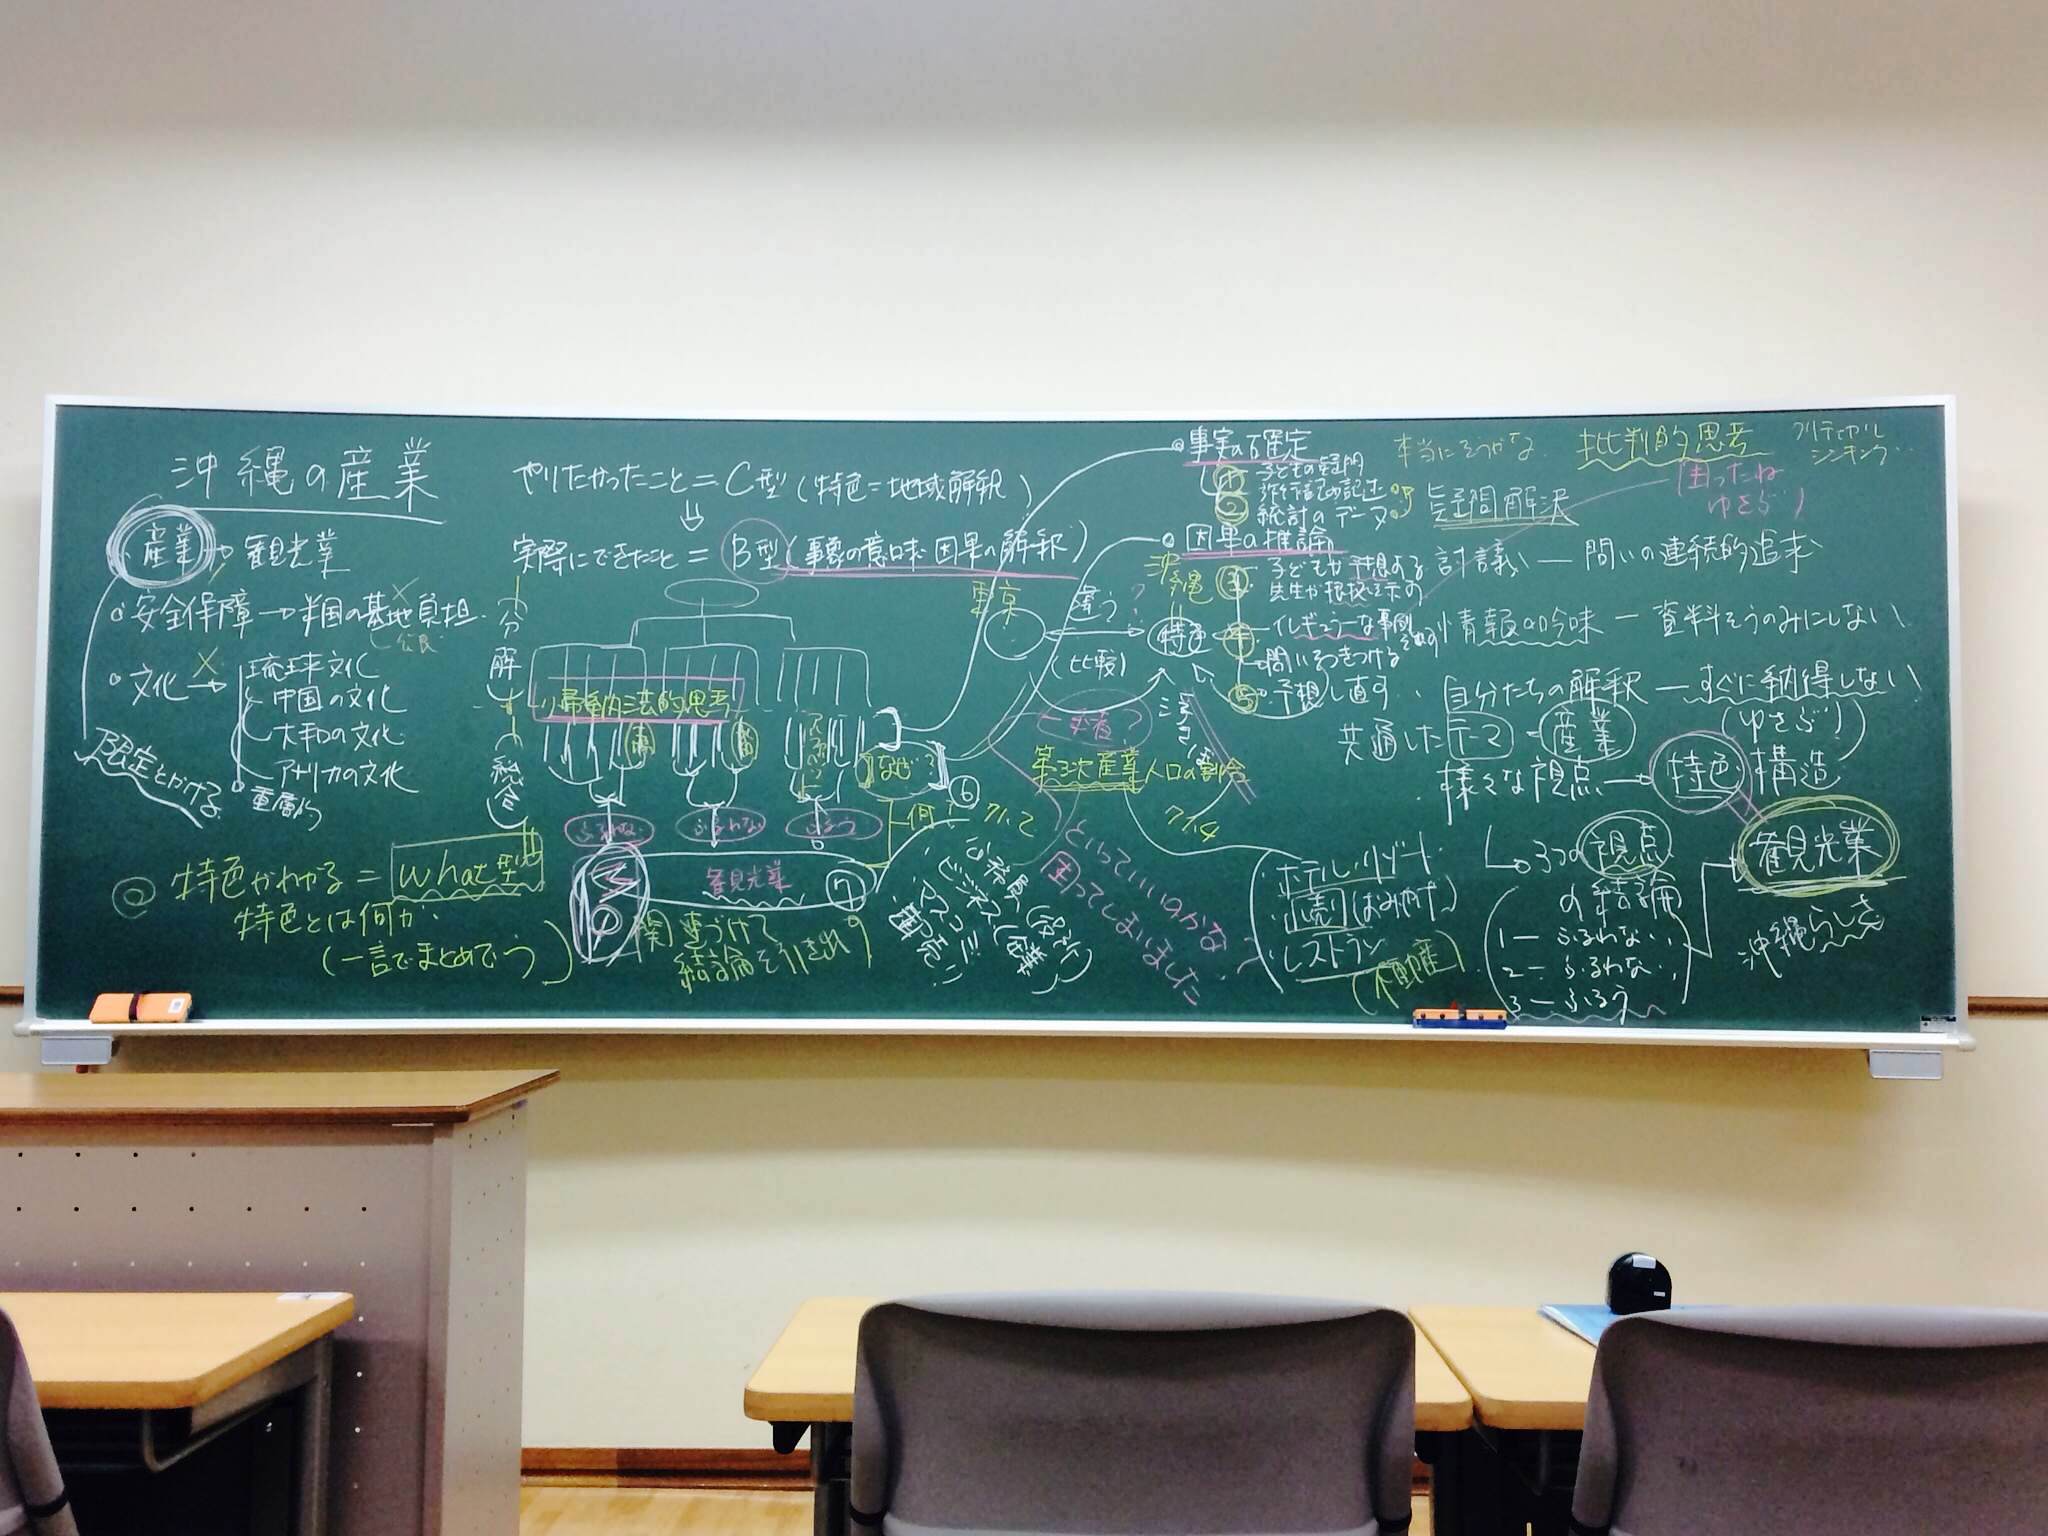 沖縄の産業
産業→観光業
安全保障→米国の基地負担
公民
文化→琉球文化
中国の文化
大和の文化
アメリカの文化
重層的
限定をかける
特色がわかる=what型
特色とは何か
(一言でまとめてう)
やりたかったこと=C型(特色=地域解釈)
実際にできたこと=B型(事象の意味・因果の解釈)
分解
総合
小帰納法的思考
なぜ?
⑥
何
ふるわない
ふるわない
ふるう
観光業
⑦
関連づけて
結論を引き出す
東京
違う?
(比較)
沖縄
特色
第三次産業人口の割合
71.2
71.4
といっていいのかな
困ってしまいました
ホテル・リゾート
小売(おみやげ)
レストラン
不動産
事実の確定
① 子どもの疑問
旅行記の記述
② 統計のデータ
疑問解決
本当にそうかな
批判的思考
クリティカルシンキング
困ったね
ゆさぶり
因果の推論
③ 子どもが予想する
先生が根拠を示す
討議 — 問いの連続的追求
④ イレギュラーな事例
問いをつきつける
情報の吟味 — 資料をうのみにしない
⑤ 予想し直す
自分たちの解釈 — すぐに納得しない
(ゆさぶり)
共通したテーマ=産業
様々な視点→特色 構造
3つの視点
の結論
1— ふるわない
2— ふるわない
3— ふるう
観光業
沖縄らしさ